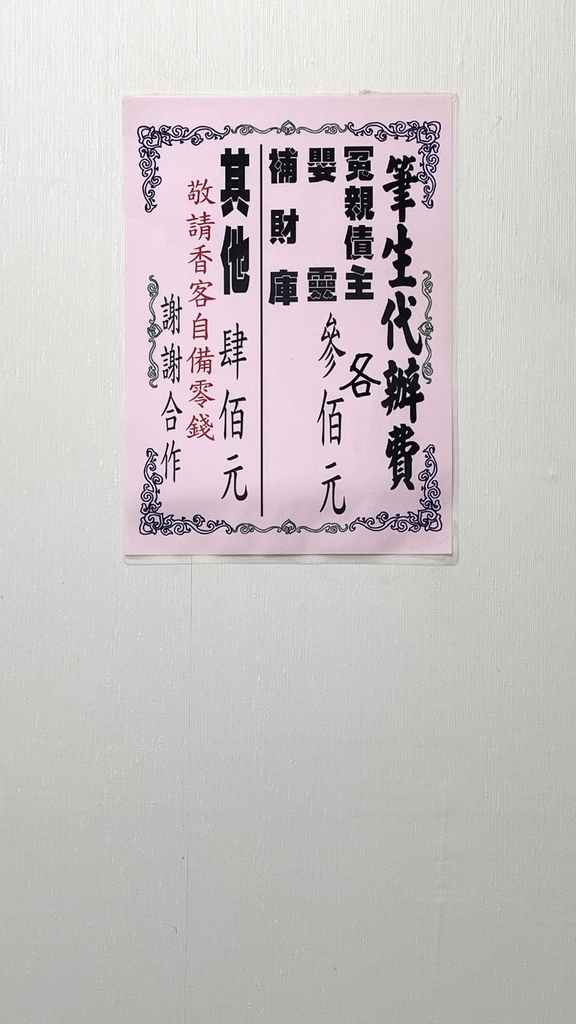 筆生代辦費
冤親債主
嬰靈
補財庫
各
參佰元
其他 肆佰元
敬請香客自備零錢
謝謝合作